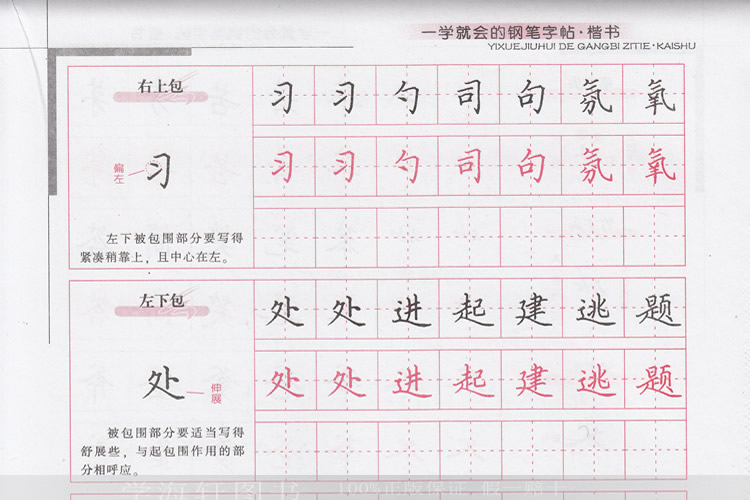 一学就会的钢笔字帖·楷书
YIXUEJIUHUI DE GANGBI ZITIE·KAISHU
右上包
习 习 勺 司 句 氛 氧
偏左
习
习 习 勺 司 句 氛 氧
左下被包围部分要写得
紧凑稍靠上，且中心在左。
左下包
处 处 进 起 建 逃 题
处
伸展
处 处 进 起 建 逃 题
被包围部分要适当写得
舒展些，与起包围作用的部
分相呼应。